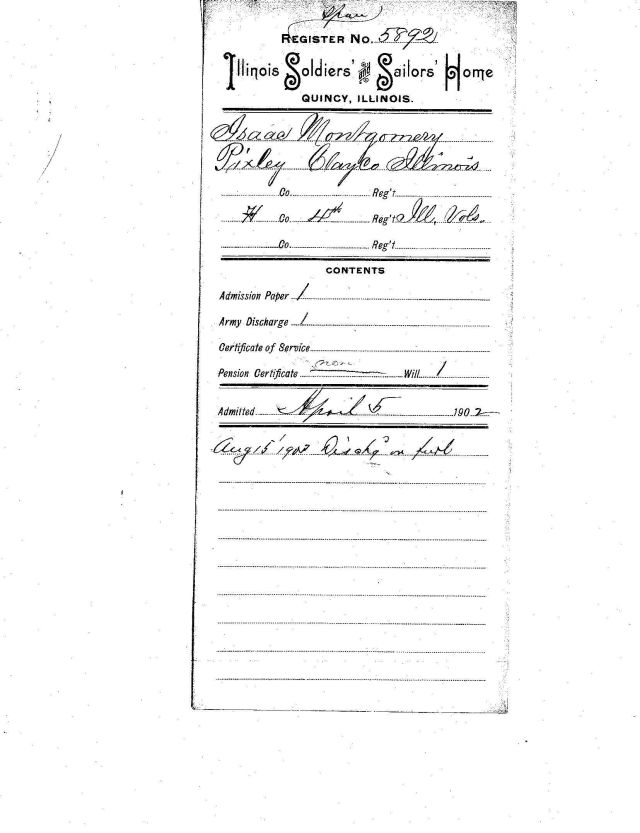 Span
REGISTER NO. 5892
Illinois Soldiers' and Sailors' Home
QUINCY, ILLINOIS.
Isaac Montgomery
Pixley Clay Co Illinois
Co. Reg't
H Co 4th Reg't Ill, Vols.
Co. Reg't
CONTENTS
Admission Paper 1
Army Discharge 1
Certificate of Service
Pension Certificate non Will 1
Admitted April 5 1902
Aug 15 1902 Disch'g on furl